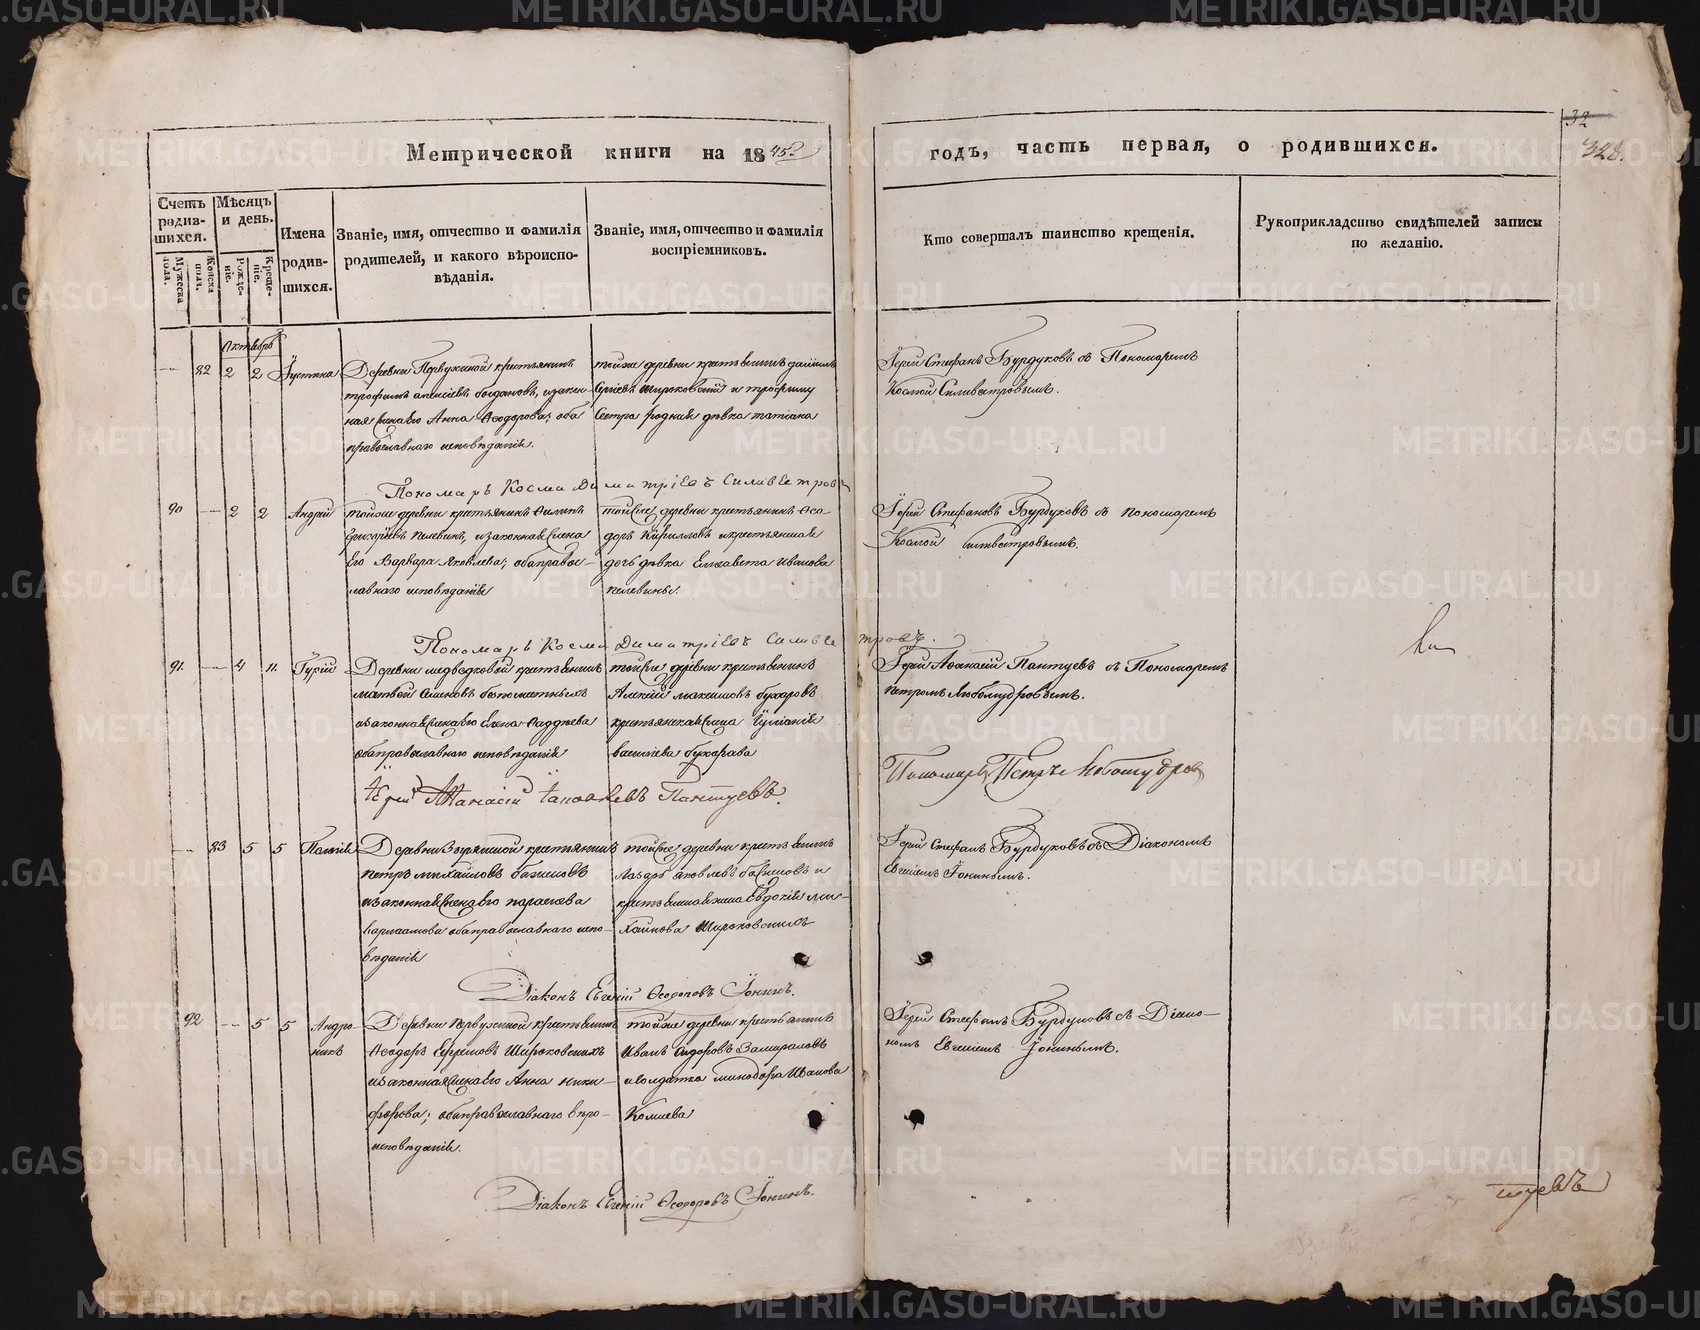 Метрической книги на 1845й
годъ, часть первая, о родившихся.
32
328.
Счетъ родив-шихся.
Мужеска пола.
Женска пола.
Мѣсяцъ и день.
Рожде-нія.
Креще-нія.
Имена родив-шихся.
Званіе, имя, отчество и фамилія
родителей, и какого вѣроиспо-
вѣданія.
Званіе, имя, отчество и фамилія
воспріемниковъ.
Кто совершалъ таинство крещенія.
Рукоприкладство свидѣтелей записи
по желанію.
Октябрь
82 2 2 Іустина
Деревни Первухиной крестьянинъ
трофимъ алексіевъ богдановъ, и закон-
ная жена его Анна Ѳеодорова; оба
православнаго исповѣданія.
тойже деревни крестьянинъ
Сергіевъ Широковскій и трофиму
Сестра родная дѣвка татіана
Іерей Стефанъ Бурдуковъ съ Пономаремъ
Космой Силивестровымъ.
Пономарь Косма Димитріевъ Силивестровъ
90 2 2 Андрей
тойже деревни крестьянинъ Филипъ
Григоріевъ Пелевинъ, и законная жена
Его Варвара Яковлева; оба правос-
лавнаго исповѣданія
тойже деревни крестьянинъ Ѳео-
доръ Кириловъ и крестьянская
дочь дѣвка Елисавета Иванова
пелевины.
Іерей Стефановъ Бурдуковъ съ Пономаремъ
Космой Силивестровымъ.
Пономарь Косма Димитріевъ Силивестровъ.
91. 4 11. Гурій
Деревни медвѣдковой крестьянинъ
матвей
и законная жена его Елена Фаддеева
оба православнаго исповѣданія
тойже деревни крестьянинъ
Алексій максимовъ бухаровъ
крестьянская жена Іуліанія
василіева бухарова
Іерей Аѳанасій Пантуевъ съ Пономаремъ
петромъ Любомудровымъ.
Іерей Аѳанасій Іаковлевъ Пантуевъ.
Пономарь Петръ Любомудровъ
83 5 5 Пелагія
Деревни Зыряной крестьянинъ
петръ михайловъ
и законная жена его параскева
варлаамова оба православнаго испо-
вѣданія
тойже деревни крестьянинъ
Лазарь яковлевъ и
крестьянская жена Евдокія ми-
хайлова Широковскихъ
Іерей Стефанъ Бурдуковъ съ Діакономъ
Евгеніемъ Іонинымъ.
Діаконъ Евгеній Ѳеодоровъ Іонинъ.
92 5 5 Андро-
никъ
Деревни Первухиной крестьянинъ
Ѳеодоръ Ефимовъ Широковскихъ
и законная жена его Анна ники-
форова; оба православнаго вѣро-
исповѣданія.
тойже деревни крестьянинъ
Иванъ Сидоровъ Замараловъ
и солдатка минодора Иванова
Іерей Стефанъ Бурдуковъ съ Діако-
номъ Евгеніемъ Іонинымъ.
Діаконъ Евгеній Ѳеодоровъ Іонинъ.
туевъ
METRIKI.GASO-URAL.RU